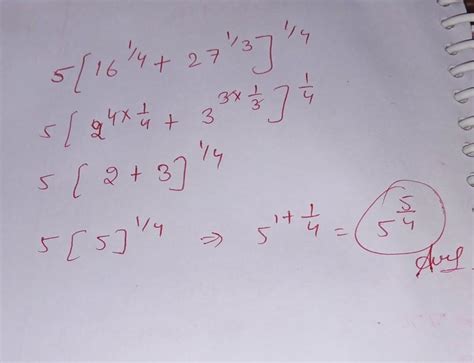 5[16^{1/4} + 27^{1/3}]^{1/4}
5[2^{4×1/4} + 3^{3×1/3}]^{1/4}
5[2+3]^{1/4}
5[5]^{1/4} ⇒ 5^{1+1/4} = 5^{5/4}
Ans